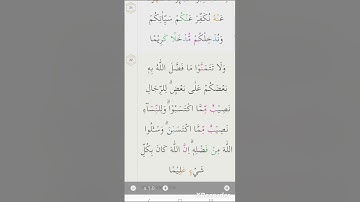 عَنْهُ نُكَفِّرْ عَنكُمْ سَيِّئَاتِكُمْ
وَنُدْخِلْكُم مُّدْخَلًا كَرِيمًا
وَلَا تَتَمَنَّوْا مَا فَضَّلَ اللَّهُ بِهِ
بَعْضَكُمْ عَلَىٰ بَعْضٍ ۚ لِّلرِّجَالِ
نَصِيبٌ مِّمَّا اكْتَسَبُوا ۖ وَلِلنِّسَاءِ
نَصِيبٌ مِّمَّا اكْتَسَبْنَ ۚ وَسْئَلُوا
اللَّهَ مِن فَضْلِهِ ۗ إِنَّ اللَّهَ كَانَ بِكُلِّ
شَيْءٍ عَلِيمًا